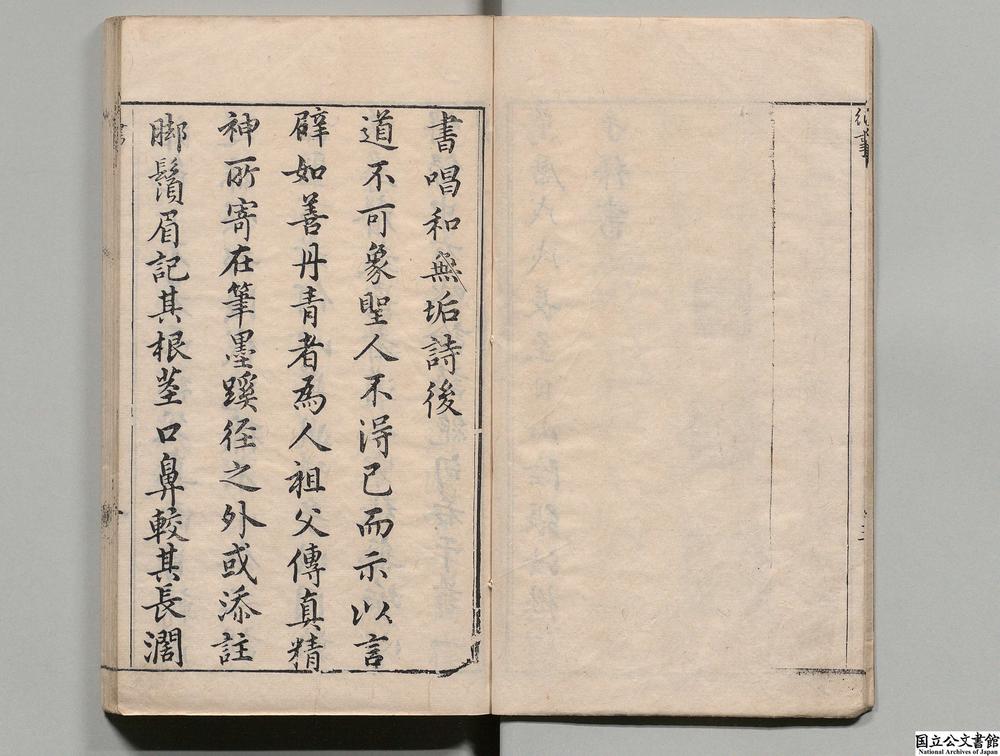 書唱和無垢詩後
道不可象聖人不得已而示以言
辟如善丹青者為人祖父傳真精
神所寄在筆墨蹊徑之外或添註
脚鬚眉記其根莖口鼻較其長濶
国立公文書館
National Archives of Japan